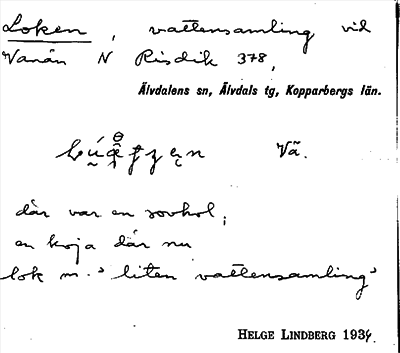 Loken, vattensamling vid
Vanån N Risdik 378,
Älvdalens sn, Älvdals tg, Kopparbergs län.
Vã.
där var en sovhol;
en koja där nu
lok m. ʾ liten vattensamlingʾ
HELGE LINDBERG 1934.